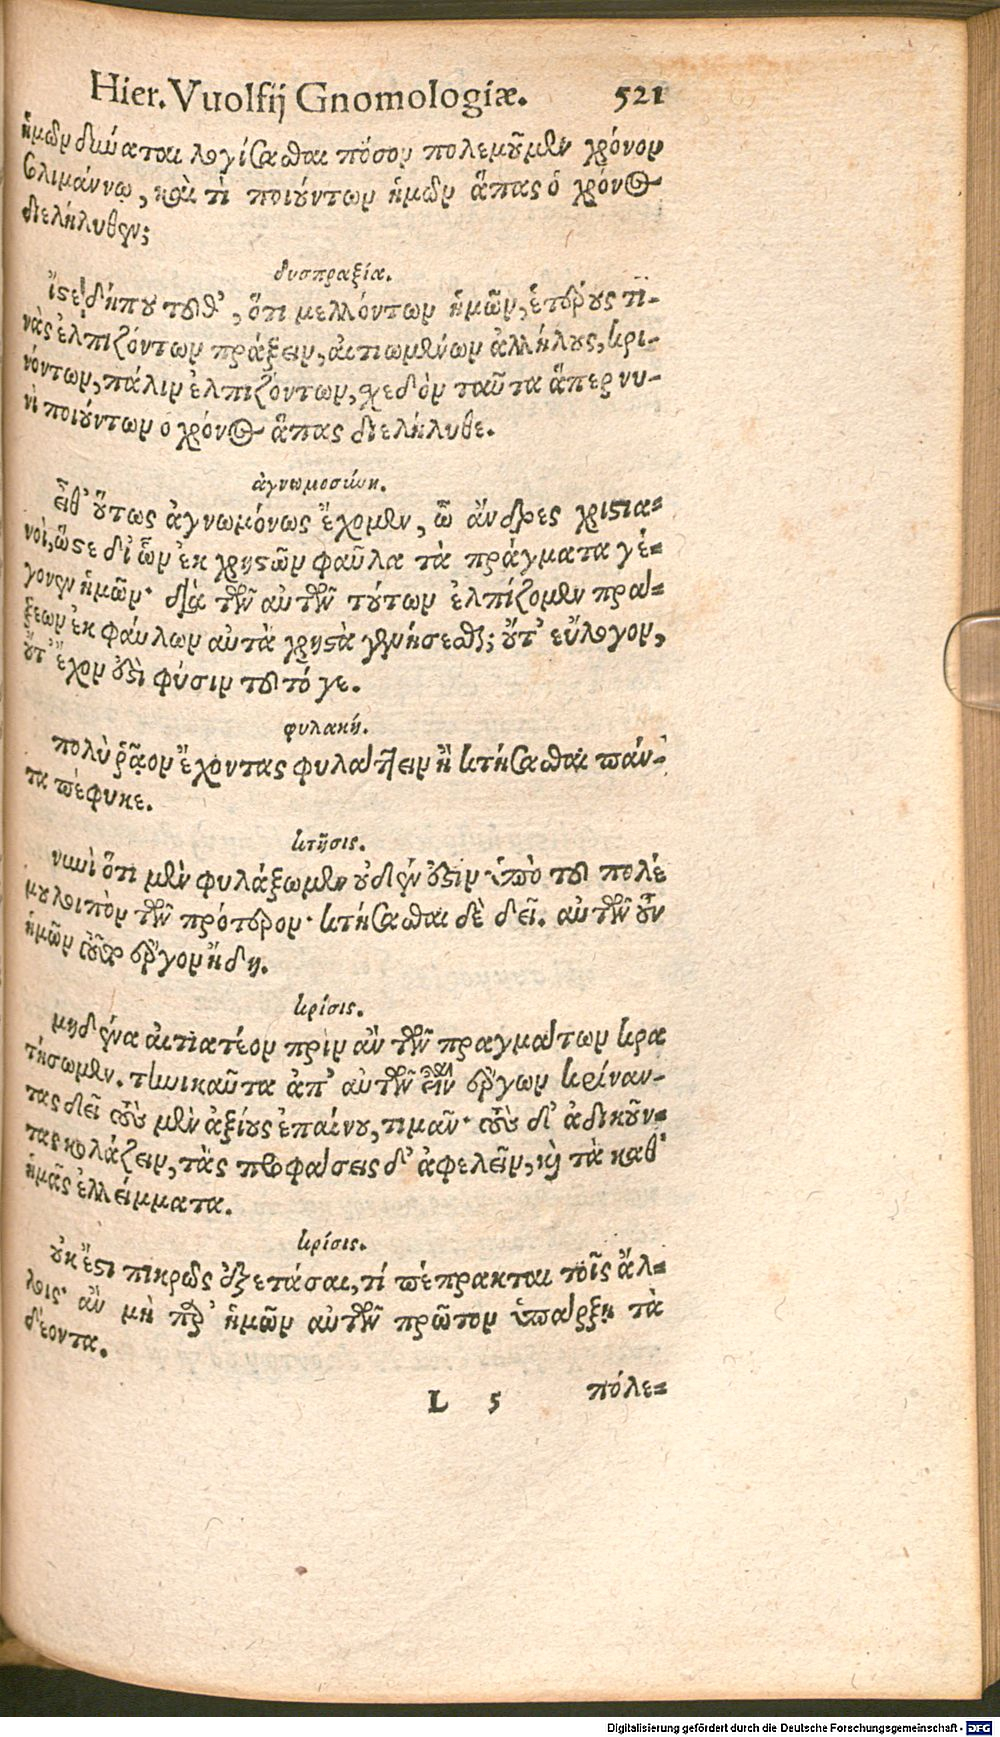 Hier. Vuolfij Gnomologiæ. 521
ἡμῶν δύναται λογίσασθαι πόσον πολεμοῦμεν χρόνον
Σολιμάννῳ, καὶ τί ποιούντων ἡμῶν ἅπας ὁ χρόνος
διελήλυθεν;
δυσπραξία.
ἴστε δήπου τοῦθ᾽, ὅτι μελλόντων ἡμῶν, ἑτέρους τι-
νὰς ἐλπιζόντων πράξειν, αἰτιωμένων ἀλλήλους, κρι-
νόντων, πάλιν ἐλπιζόντων, σχεδὸν ταῦτα ἅπερ νυ-
νὶ ποιούντων ὁ χρόνος ἅπας διελήλυθε.
ἀγνωμοσύνη.
εἶθ᾽ οὕτως ἀγνωμόνως ἔχομεν, ὦ ἄνδρες χριστια-
νοί, ὥστε δι᾽ ὧν ἐκ χρηστῶν φαῦλα τὰ πράγματα γέ-
γονεν ἡμῶν· διὰ τῶν αὐτῶν τούτων ἐλπίζομεν πρά-
ξεων ἐκ φαύλων αὐτὰ χρηστὰ γενήσεσθαι; οὔτ᾽ εὔλογον,
οὔτ᾽ ἔχον ἐστὶ φύσιν τοῦτό γε.
φυλακή.
πολὺ ῥᾷον ἔχοντας φυλάττειν ἢ κτήσασθαι πάν-
τα πέφυκε.
κτῆσις.
νυνὶ ὅτι μὲν φυλάξωμεν οὐδέν ἐστιν ὑπὸ τοῦ πολέ
μου λοιπὸν τῶν πρότερον· κτήσασθαι δὲ δεῖ. αὐτῶν οὖν
ἡμῶν ἔργον ἤδη.
κρίσις.
μηδένα αἰτιατέον πρὶν ἂν τῶν πραγμάτων κρα
τήσωμεν. τηνικαῦτα ἀπ᾽ αὐτῶν τῶν ἔργων κρίναν-
τας δεῖ τοὺς μὲν ἀξίους ἐπαίνου, τιμᾶν· τοὺς δ᾽ ἀδικοῦν-
τας κολάζειν, τὰς προφάσεις δ᾽ ἀφελεῖν, καὶ τὰ καθ᾽
ἡμᾶς ἐλλείμματα.
κρίσις.
οὐκ ἔστι πικρῶς ἐξετάσαι, τί πέπρακται τοῖς ἄλ-
λοις· ἂν μὴ παρ᾽ ἡμῶν αὐτῶν πρῶτον ὑπάρξῃ τὰ
δέοντα.
L 5 πόλε-
Digitalisierung gefördert durch die Deutsche Forschungsgemeinschaft - DFG